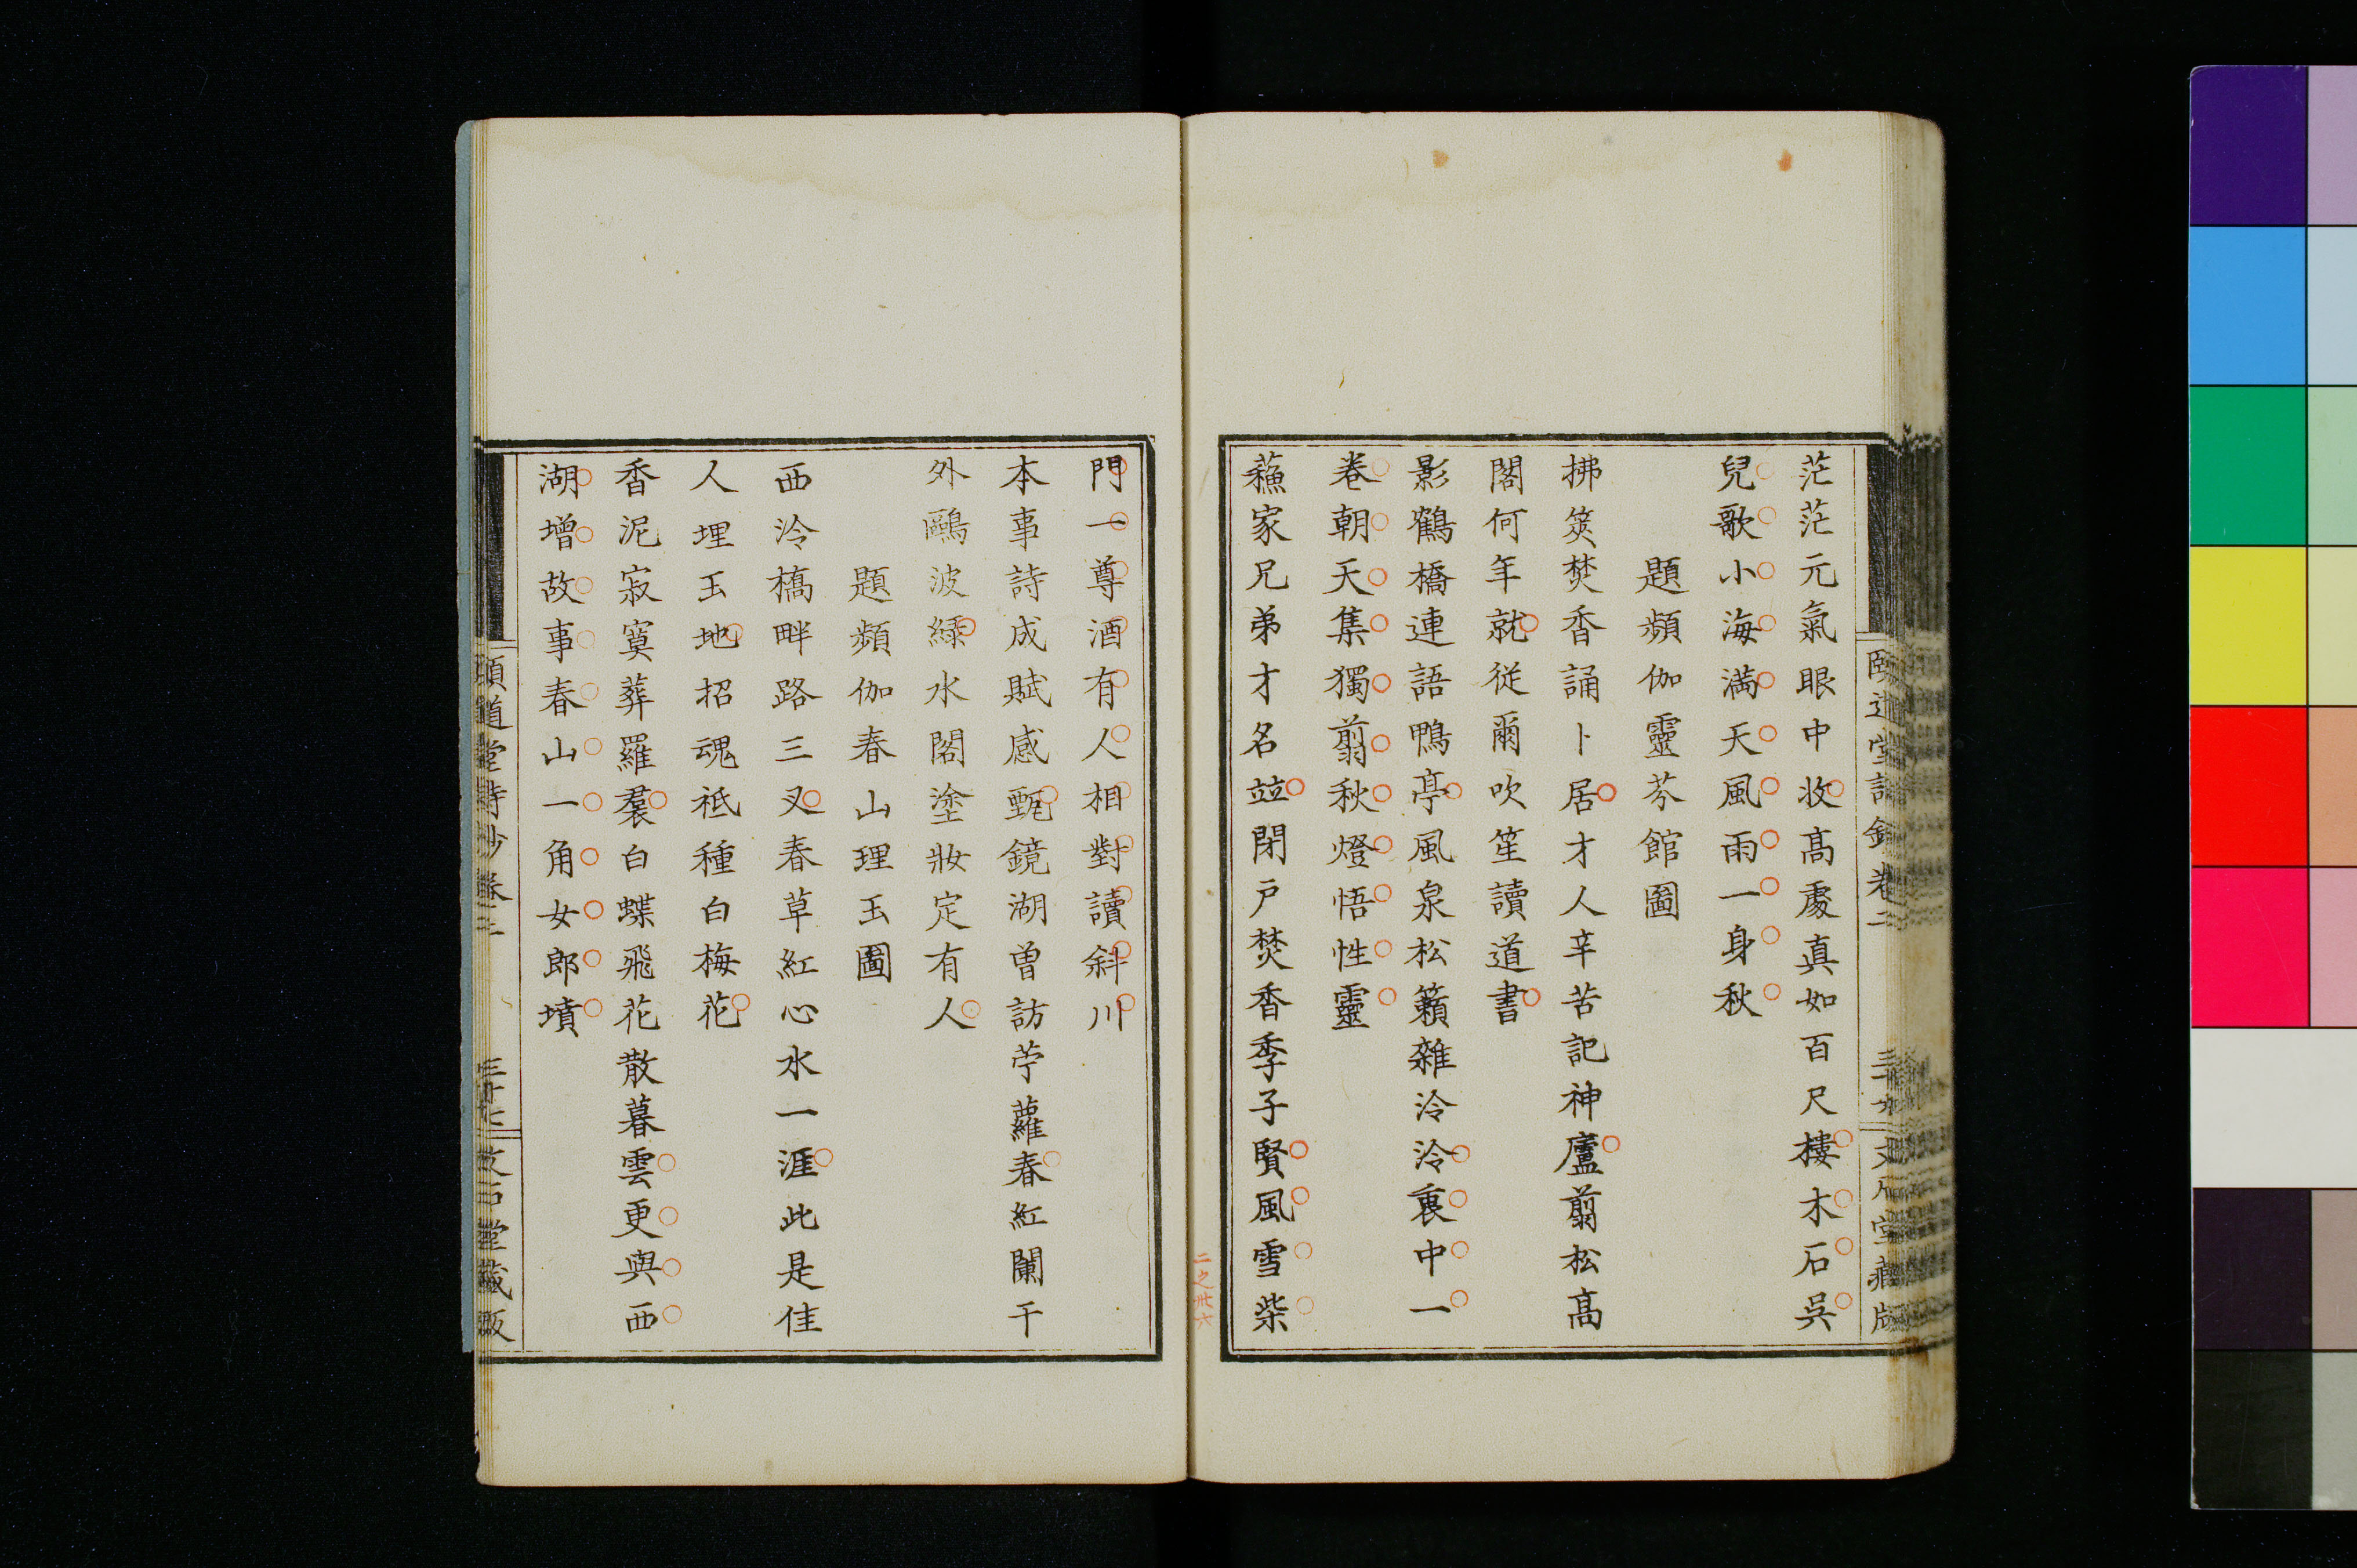 茫茫元氣眼中收高處真如百尺樓木石吳
兒歌小海滿天風雨一身秋
題頻伽靈芬館圖
拂笑焚香誦卜居才人辛苦記神廬翦松高
閣何年就從爾吹笙讀道書
影鶴橋連語鴨亭風泉松籟雜泠泠裏中一
卷朝天集獨翦秋燈悟性靈
蘓家兄弟才名竝閉戸焚香季子賢風雪柴
門一尊酒有人相對讀斜川
本事詩成賦感甄鏡湖曾訪苧蘿春紅闌干
外鷗波綠水閣塗妝定有人
題頻伽春山埋玉圖
西泠橋畔路三叉春草紅心水一涯此是佳
人埋玉地招魂祗種白梅花
香泥寂寞葬羅裙白蝶飛花散暮雲更與西
湖增故事春山一角女郎墳
頤道堂詩鈔卷二
三十七
文石堂藏版
二之卅六